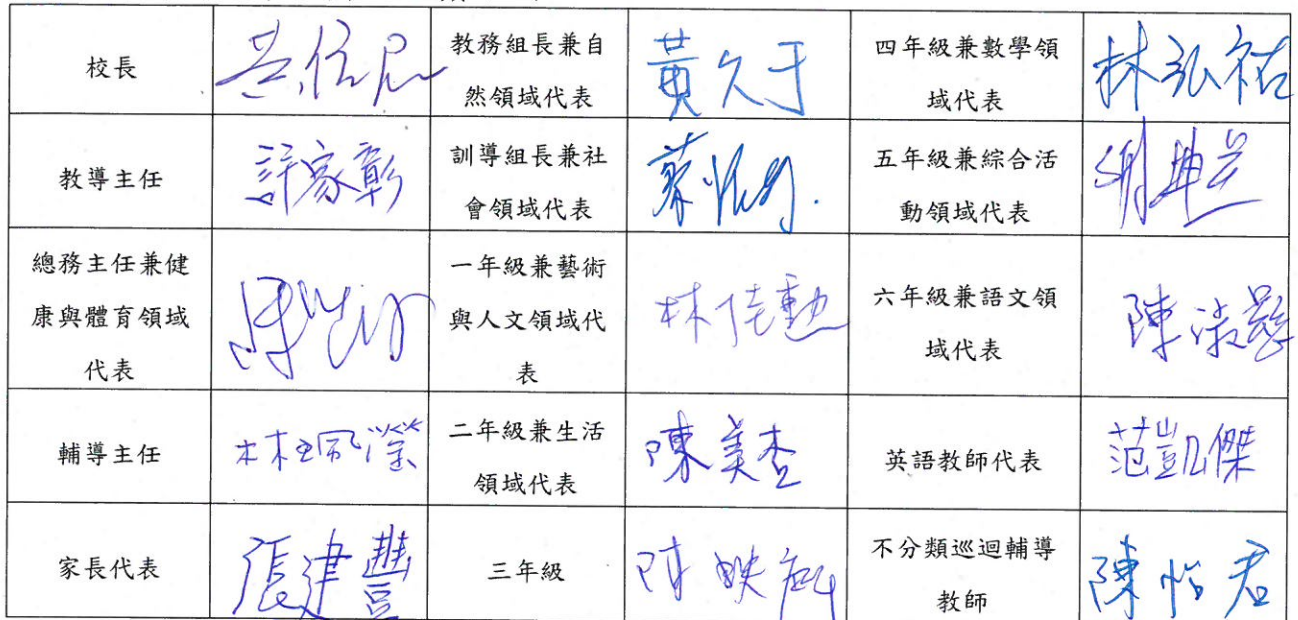 校長
教務組長兼自
然領域代表
黃久于
四年級兼數學領
域代表
林弘祐
教導主任
許家彰
訓導組長兼社
會領域代表
五年級兼綜合活
動領域代表
總務主任兼健
康與體育領域
代表
一年級兼藝術
與人文領域代
表
林佳勳
六年級兼語文領
域代表
陳淑慈
輔導主任
林珮瀅
二年級兼生活
領域代表
陳美杏
英語教師代表
范凱傑
家長代表
張建豐
三年級
不分類巡迴輔導
教師
陳怡君